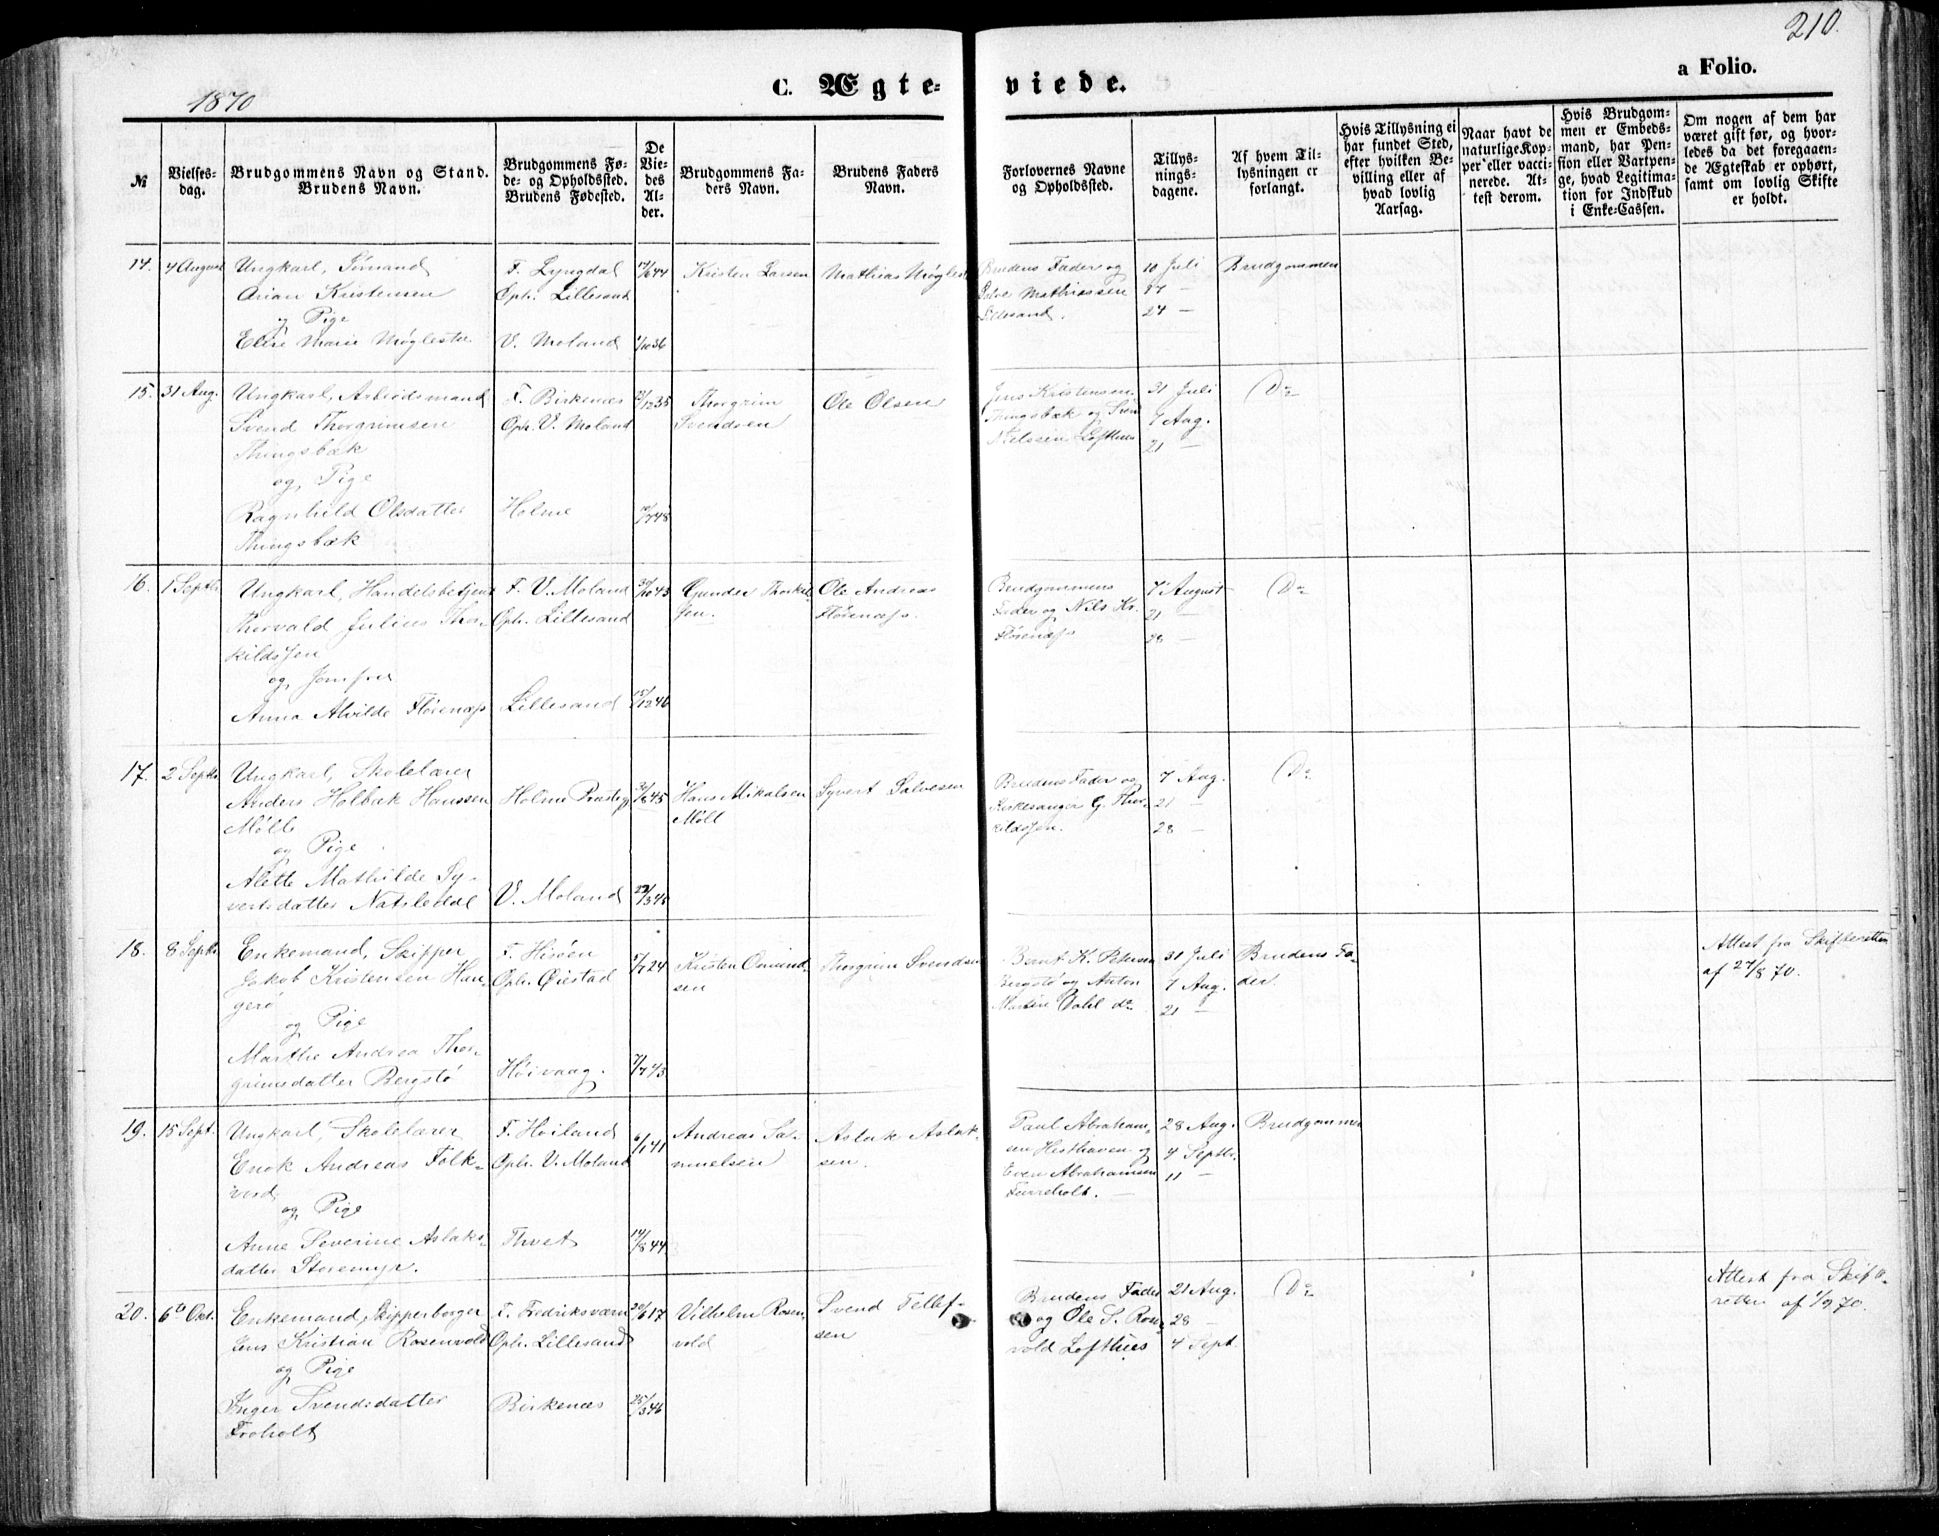 210.
a Folio.
1870
C. Ægte-
viede.
№
Vielses-
dag.
Brudgommens Navn og Stand.
Brudens Navn.
Brudgommens Fø-
de- og Opholdssted.
Brudens Fødested.
De
Vie-
des
Al-
der.
Brudgommens Fa-
ders Navn.
Brudens Faders
Navn.
Forlovernes Navne
og Opholdssted.
Tillys-
nings-
dagene.
Af hvem Til-
lysningen er
forlangt.
Hvis Tillysning ei
har fundet Sted,
efter hvilken Be-
villing eller af
hvad lovlig
Aarsag.
Naar havt de
naturlige Kop-
per eller vacci-
nerede. At-
test derom.
Hvis Brudgom-
men er Embeds-
mand, har Pen-
sion eller Vartpen-
ge, hvad Legitima-
tion for Indskud
i Enke-Cassen.
Om nogen af dem har
været gift før, og hvor-
ledes da det foregaaen-
de Ægteskab er ophørt,
samt om lovlig Skifte
er holdt.
14.
4 August
Ungkarl, Sømand
Arian Kristensen
og Pige
Elise Marie Møglestu
F. Lyngdal
Oph. Lillesand
V. Moland
Kristen Larsen
Mathias Møglest
Brudens Fader og
Salve Mathiassen
Lillesand.
10 Juli
17 —
24 —
Brudgommen
15.
31 Aug.
Ungkarl, Arbeidsmand
Svend Thorgrimsen
Thingsbæk
og Pige
Ragnhild Olsdatter
Thingsbæk
F. Birkenæs
Oph. V. Moland
Holme
Thorgrim
Svendsen
Ole Olsen
Jens Kristensen
Tingsbæk og
Nielssen Lofthus
31 Juli
7 Aug.
21 —
Do
16.
1 Septbr
Ungkarl, Handelsbetjent
Thorvald Julius Thor-
kildssen
og Jomfru
Anna Alvilde Flørenæss
F. V. Moland
Oph. Lillesand
Lillesand
30/10 43
15/12 46
Gunder Thorkil-
sen.
Ole Andreas
Flørenæss.
Brudgommens
Fader og Nils Kr.
Flørenæss
7 August
21 —
28 —
Do
17.
2 Septbr
Ungkarl, Skolelærer
Anders Holbæk Hanssen
Møll
og Pige
Alette Mathilde Sy-
vertsdatter Natsledal
Holme Præstg
V. Moland
Hans Mikalsen
Møll
Syvert Salvesen
Brudens Fader og
Kirkesanger G. Thor-
kildssen.
7 Aug.
21 —
28 —
Do
18.
8 Septbr
Enkemand, Skipper
Jakob Kristensen Han-
gerø
og Pige
Marthe Andrea Thor-
grimsdatter Bergstø
F. Hisøen
Oph. Øiestad
Høivaag.
5/7 24
7/7 43
Kristen Omund-
sen
Thorgrim Svendsen
Bernt K. Petersen
Bergstø og Anton
Martin Dahl do
31 Juli
7 Aug.
21 —
Brudens Fa-
der.
Attest fra Skifteretten
af 27/8 70.
19.
15 Sept.
Ungkarl, Skolelærer
Enok Andreas Folk-
vord
og Pige
Anne Severine Aslaks-
datter Storemyr.
F. Høiland
Oph. V. Moland
Thvet
6/1 41
14/8 44
Andreas Sa-
muelsen
Aslak Aslak-
sen.
Paul Abraham-
sen Hesthaven og
Even Abrahamsen
Furreholt. —
28 Aug.
4 Septbr.
11 —
Brudgommen
20.
6te Okt.
Enkemand, Skipperborger
Jens Kristian Rosenvold
og Pige
Inger Svendsdatter
Froholt
F. Fredriksværn
Oph. Lillesand
Birkenæs
20/6 17
25/3 46
Vilhelm Rosen-
vold
Svend Tellef-
sen
Brudens Fader
og Ole S. Rosen-
vold Lofthus
21 Aug.
28 —
4 Sept.
Do
Attest fra Skifte-
retten af 1/9 70.